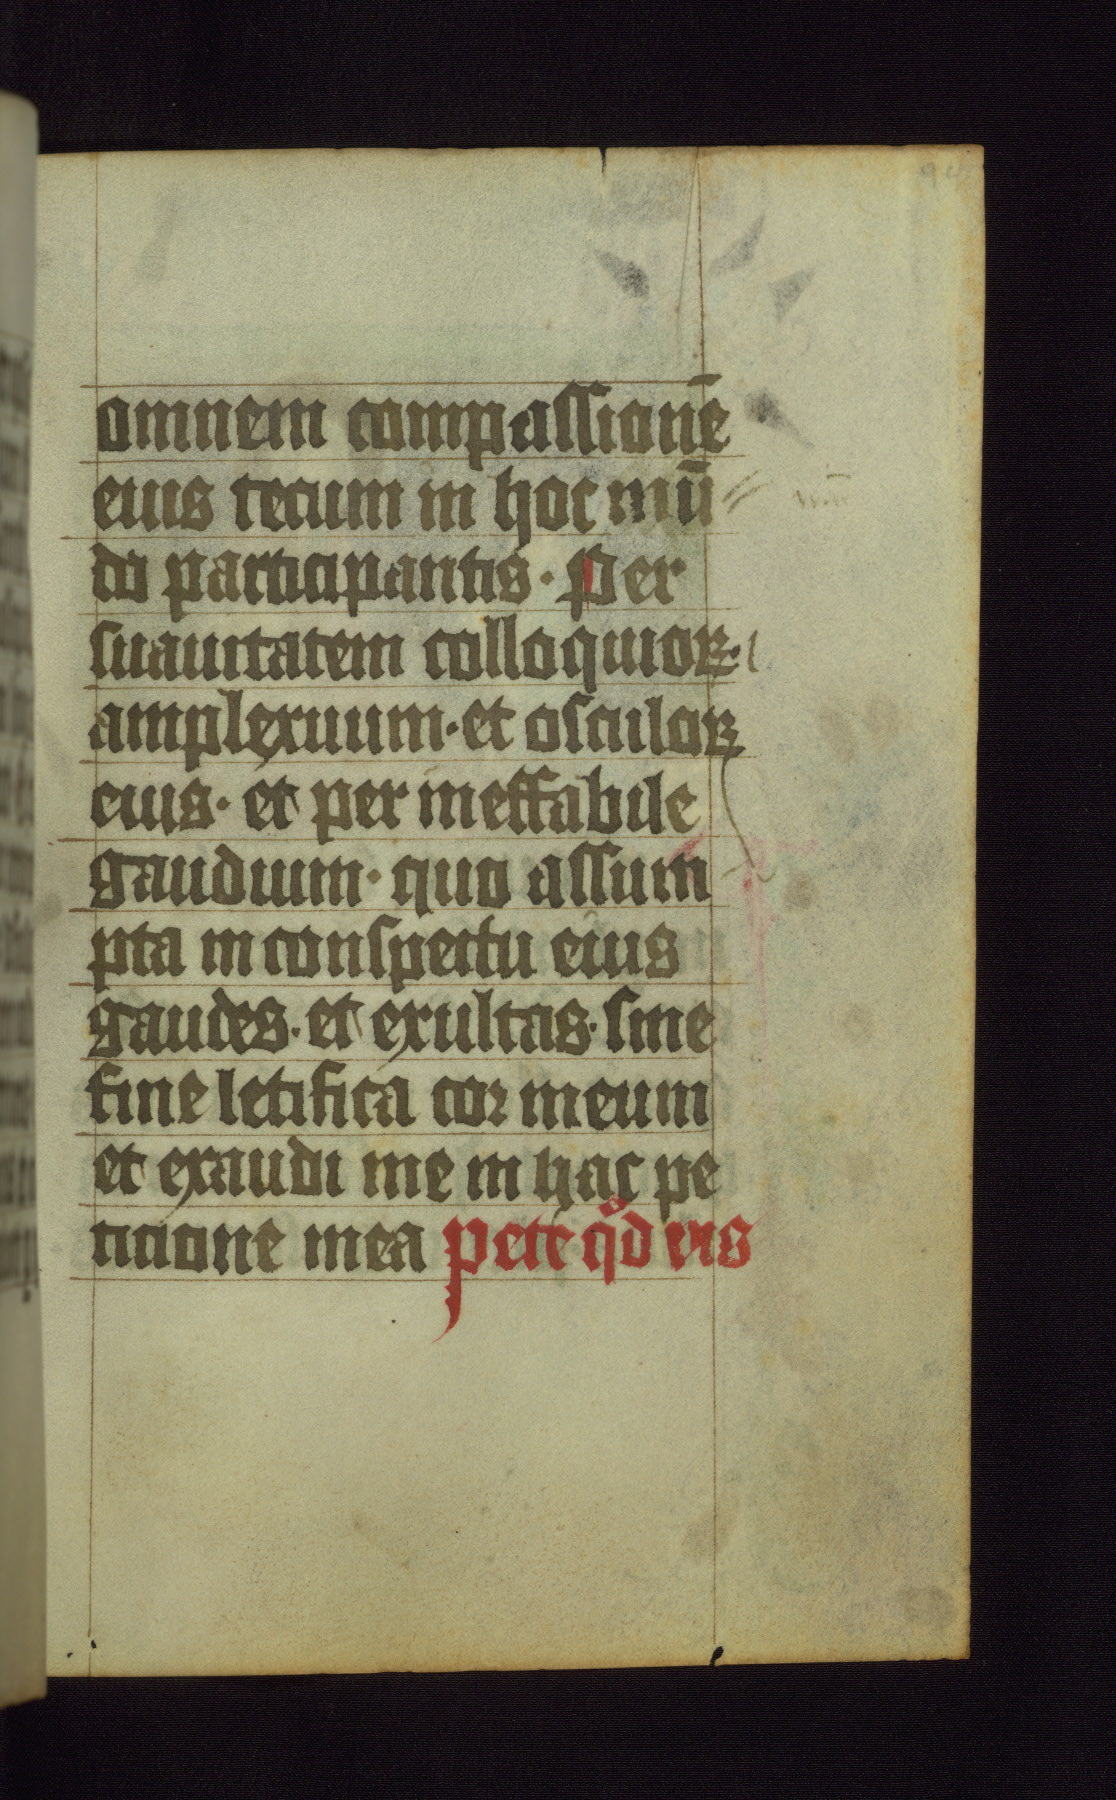 omnem compassionē
eius tecum in hoc mū
do participantis. Per
suauitatem colloquioꝝ.
amplexuum. et osculoꝝ
eius. et per ineffabile
gaudium. quo assum
pta in conspectu eius
gaudes. et exultas. sine
fine letifica cor meum
et exaudi me in hac pe
ticione mea Pete qͦd vis